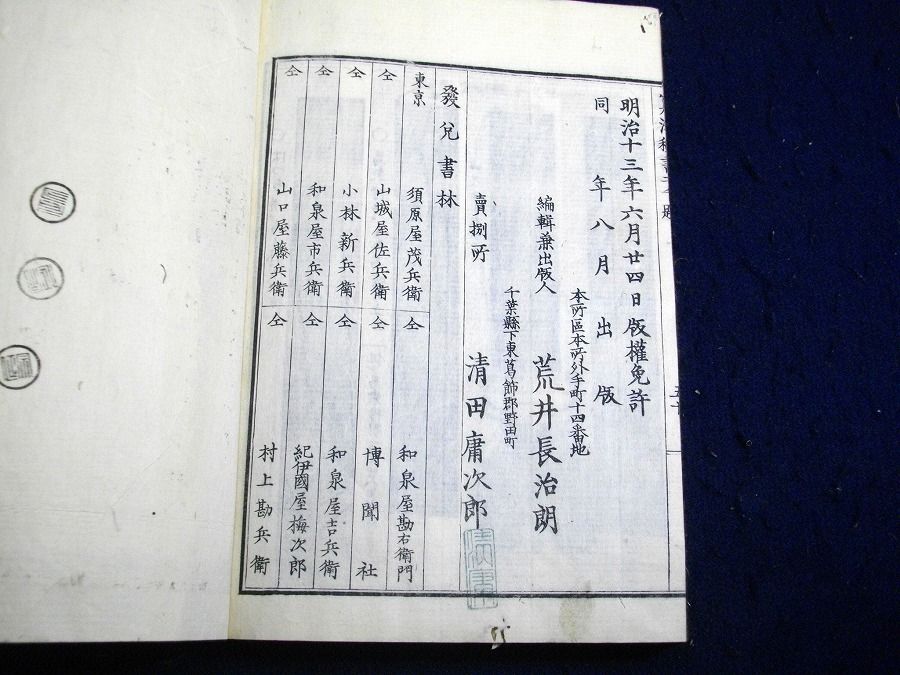 明治十三年六月廿四日版權免許
同年八月出版
本所區本所外手町十四番地
編輯兼出版人 荒井長治朗
千葉縣下東葛飾郡野田町
賣捌所 清田庸次郎
發兌書林
東京 須原屋茂兵衛
仝 和泉屋勘右衛門
仝 山城屋佐兵衛
仝 博聞社
仝 小林新兵衛
仝 和泉屋吉兵衛
仝 和泉屋市兵衛
仝 紀伊國屋梅次郎
仝 山口屋藤兵衛
仝 村上勘兵衛